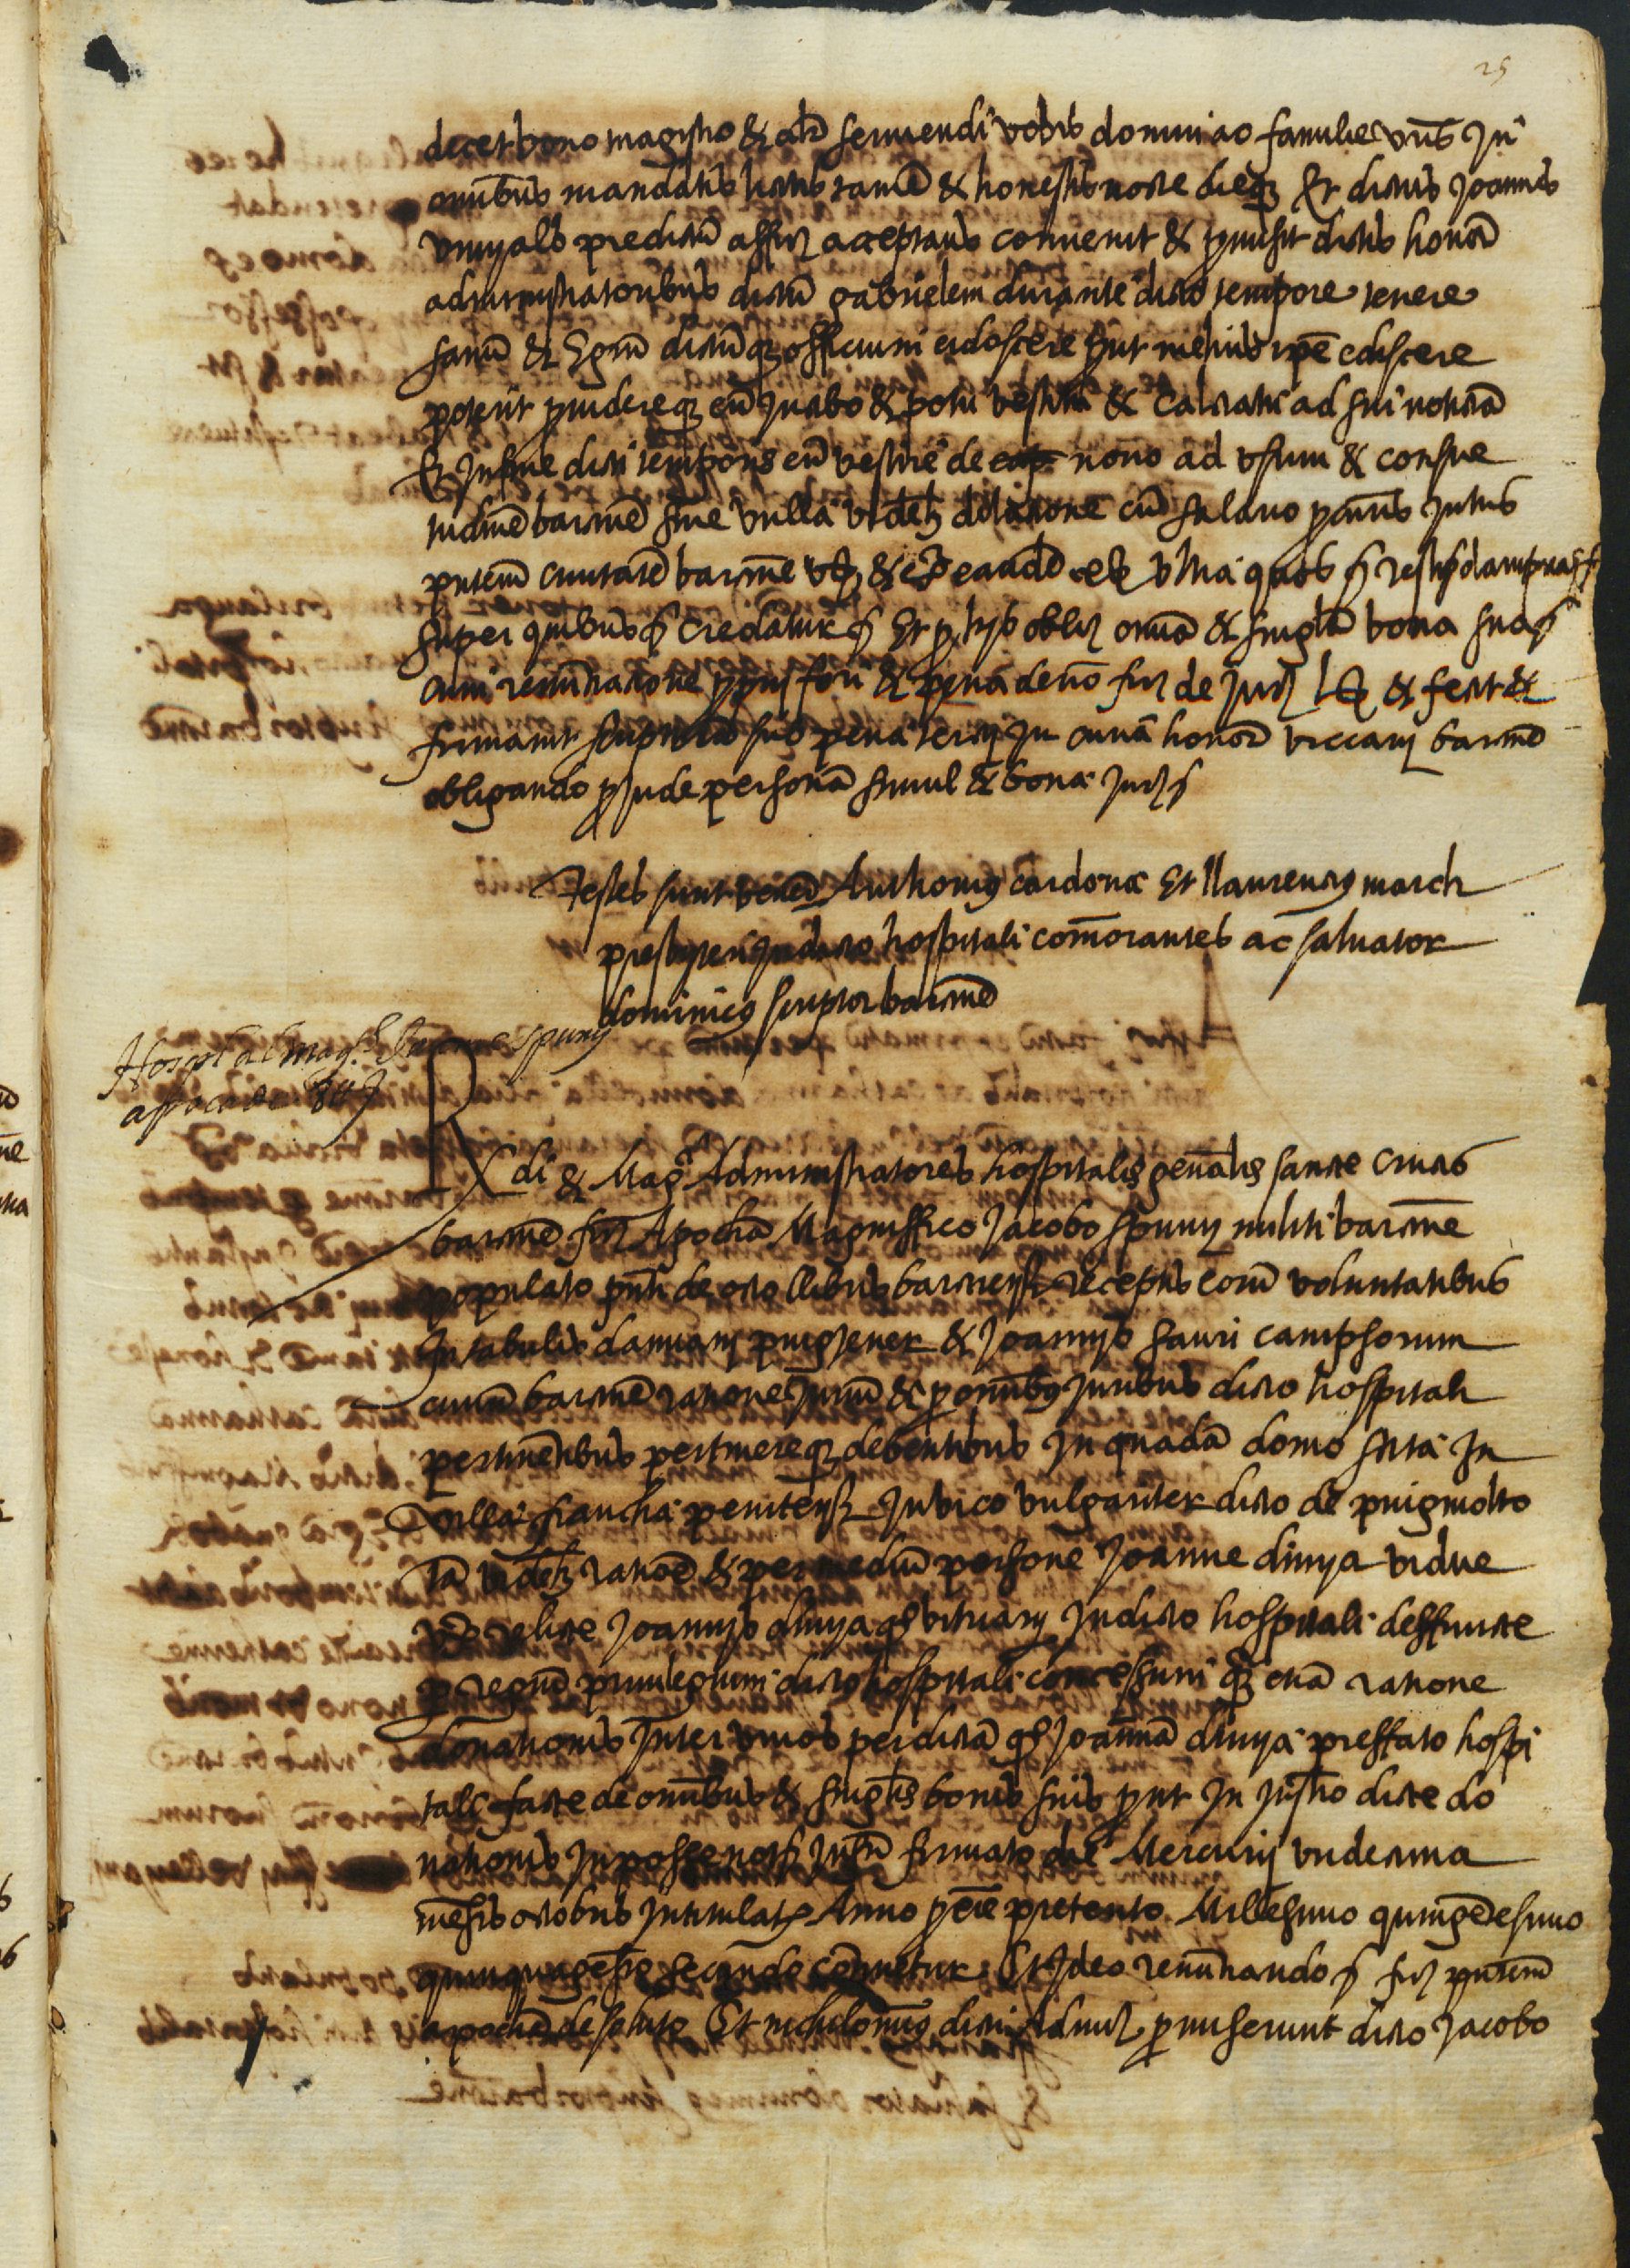 25
decet bono magistro & alr servendi vobis dominiao familie vre In
omnibus mandatis licitis tame & honestis nocte dieq Et dictus Joannes
vinyals predictu affirmz acceptans convenit & promisit dictis honor
administratoribus dictu gabrielem durante dicto tempore tenere
sanu & Egrum dictuq officium edoscere prout melius ipse ediscere
poterit providereq eum In cibo & potu vestitu & calciatu ad sui noticia
Et In fine dicti temporis eum vestire de nono ad usum & consue
tudine barcinone sine ulla videlz dilacione cum salario procuratoris Intus
presentem civitate barcinone & extra eande ultra quos restitudam
super quibus credatur Et pro hiis obligz omnia & singula bona sua
cum renunciatione proprii fori & pena deno firz de Jurz & fecit &
firmavit scriptura sub pena tercii In curia honor viccarii barcinone
obligando proinde persona simul & bona Jurz
Testes sunt vener Anthonius cardona Et llaurencius march
presbyteri In dicto hospitali comorantes ac salvator
dominicus scriptor barcinone
Hospital mag Jaume Spuny
apoca de 8 ll
Rdi & Magci Administratores hospitalis generalis sancte Crucis
barcinone firz Apocha Magniffico Jacobo Spuny militi barcinone
populato pnti de octo llibris barcinens receptis eorum voluntatibus
In tabulis damiani puigjener & Joannis sauri campsorum
civium barcinone racione Jurium & pro omnibus Juribus dicto hospitali
pertinentibus pertinereq debentibus In quadam domo sita In
villa francha penitensi In vico vulgariter dicto de puigmolto
Ta videlz racione & per mediu persone Joanne dimya vidue
relicte Joannis dimya qo In dicto hospitali deffuncte
per regium privilegium dicto hospitali concessum q etia racione
donationis Inter vivos per dictam qo Joannam dimya preffato hospi
tali facte de omnibus & singulis bonis suis prout In Instro dicte do
nationis In posse notarii Infri firmato die Mercurii undecima
mensis octobris Intitulata Anno proxime preterito Millesimo quingetesimo
quinquagesimo secundo continetur Et Ideo renunciando firz presentem
apocham de soluto Et nichilominus dicti Admirz promiserunt dicto Jacobo